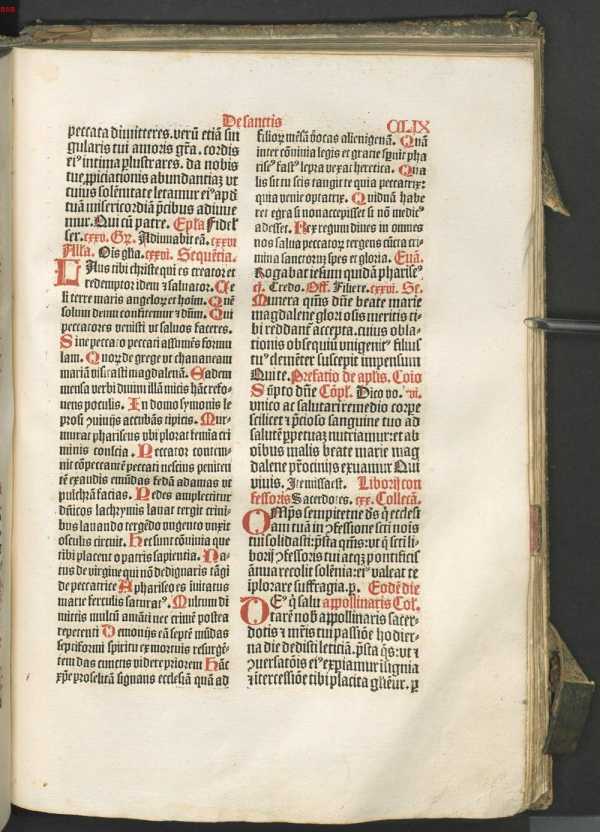 De sanctis
CLIX
peccata dimitteres. verū etiā sin
gularis tui amoris grā. cordis
eiꝰ intima plustrares. da nobis
tue ꝓpiciationis abundantiaꝫ vt
cuius solēnitate letamur eiꝰ apd̓
tuā misericordiā p̄cibus adiuue
mur. Qui cū patre. Ep̄la Fidel̓
ser. cxxv. Gꝛ. Adiuuabit eā. cxxvi
Alla. Ois gl̓ia. cxxvi. Sequētia.
Laus tibi christe qui es creator et
redemptor idem ⁊ saluator. Ce
li terre maris angeloꝝ et hoim. Quē
solum deum confitemur ⁊ dūm. Qui
peccatores venisti vt saluos faceres.
Sine pecc̄o peccati assumēs formu
lam. Quoꝝ de grege vt chananeam
mariā visitasti magdalenā. Eadem
mensa verbi diuini illā micis hāc refo-
uens poculis. In domo symonis le
prosi ꝯuiuijs accubās tipicis. Mur-
murat phariseus vbi plorat femīa cri
minis conscia. Peccator contem-
nit cōpeccantē peccati nescius peniten
tē exaudis emūdas fedā adamas vt
pulchrā facias. Pedes amplectitur
dn̄icos lachrymis lauat tergit crini-
bus lauando tergēdo vngento vnxit
osculis circuit. Hec sunt cōuiuia que
tibi placent o patris sapientia. Na-
tus de virgine qui nō dedignaris tāgi
de peccatrice A phariseo es inuitatus
marie ferculis saturatꝰ. Multum di
mittis multū amāti nec crimē postea
repetenti Demonijs eā septē mūdas
septiformi spiritu ex mortuis resurgē-
tem das cunctis videre priorem Hāc
xp̄e proselitā signans ecclesiā quā ad
filioꝝ mēsā vocas alienigenā. Quā
inter cōuiuia legis et gratie sp̄nit pha
riseꝰ fastꝰ lepra vexat heretica. Qua
lis sit tu scis tangit te quia peccatrix:
quia venie optatrix. Quidnā habe
ret egra si non accepisset si nō medicꝰ
adesset. Rex regum diues in omnes
nos salua peccatoꝝ tergens cūcta cri-
mina sanctorum spes et gloria. Euā.
Rogabat iesum quidā phariseꝰ
cj. Credo. Off. Filiere. cxxvi. Se.
Munera qm̄s dn̄e beate marie
magdalene gloriosis meritis ti-
bi reddant̄ accepta. cuius obla-
tionis obsequiū vnigenitꝰ filius
tuꝰ clemēter suscepit impensum
Qui te. Prefatio de ap̄lis. Cōio
Sūpto dn̄e Cōpl̓. Dico vo. vi.
vnico ac salutari remedio corpe
scilicet ⁊ p̄cioso sanguine tuo ad
salutē ꝑpetuaꝫ nutriamur: et ab
oībus malis beate marie mag
dalene pr̄ociniis exuamur Qui
viuis. Ite missa est. Liborij con
fessoris Sacerdotes. cxx. Collecā.
Omp̄s sempiterne dꝰ q̄ ecclesi
am tuā in ꝯfessione sctī nois
tui solidasti: p̄sta qm̄s: vt q̄ sctī li-
borij ꝯfessoris tui atqꝫ pontificis
ānua recolit solēnia: eiꝰ valeat te
iplorare suffragia. ꝑ. Eodē die
Deꝰ q̄ salu appollinaris Col̓.
tarē nob̓ appollinaris sacer-
dotis ⁊ mr̄is tui passiōe hodier-
na die dedisti leticiā. p̄sta qs: vt ⁊
ꝯuersatōis eiꝰ expiamur isignia
⁊ itercessiōe tibi placita gn̄eur. ꝑ